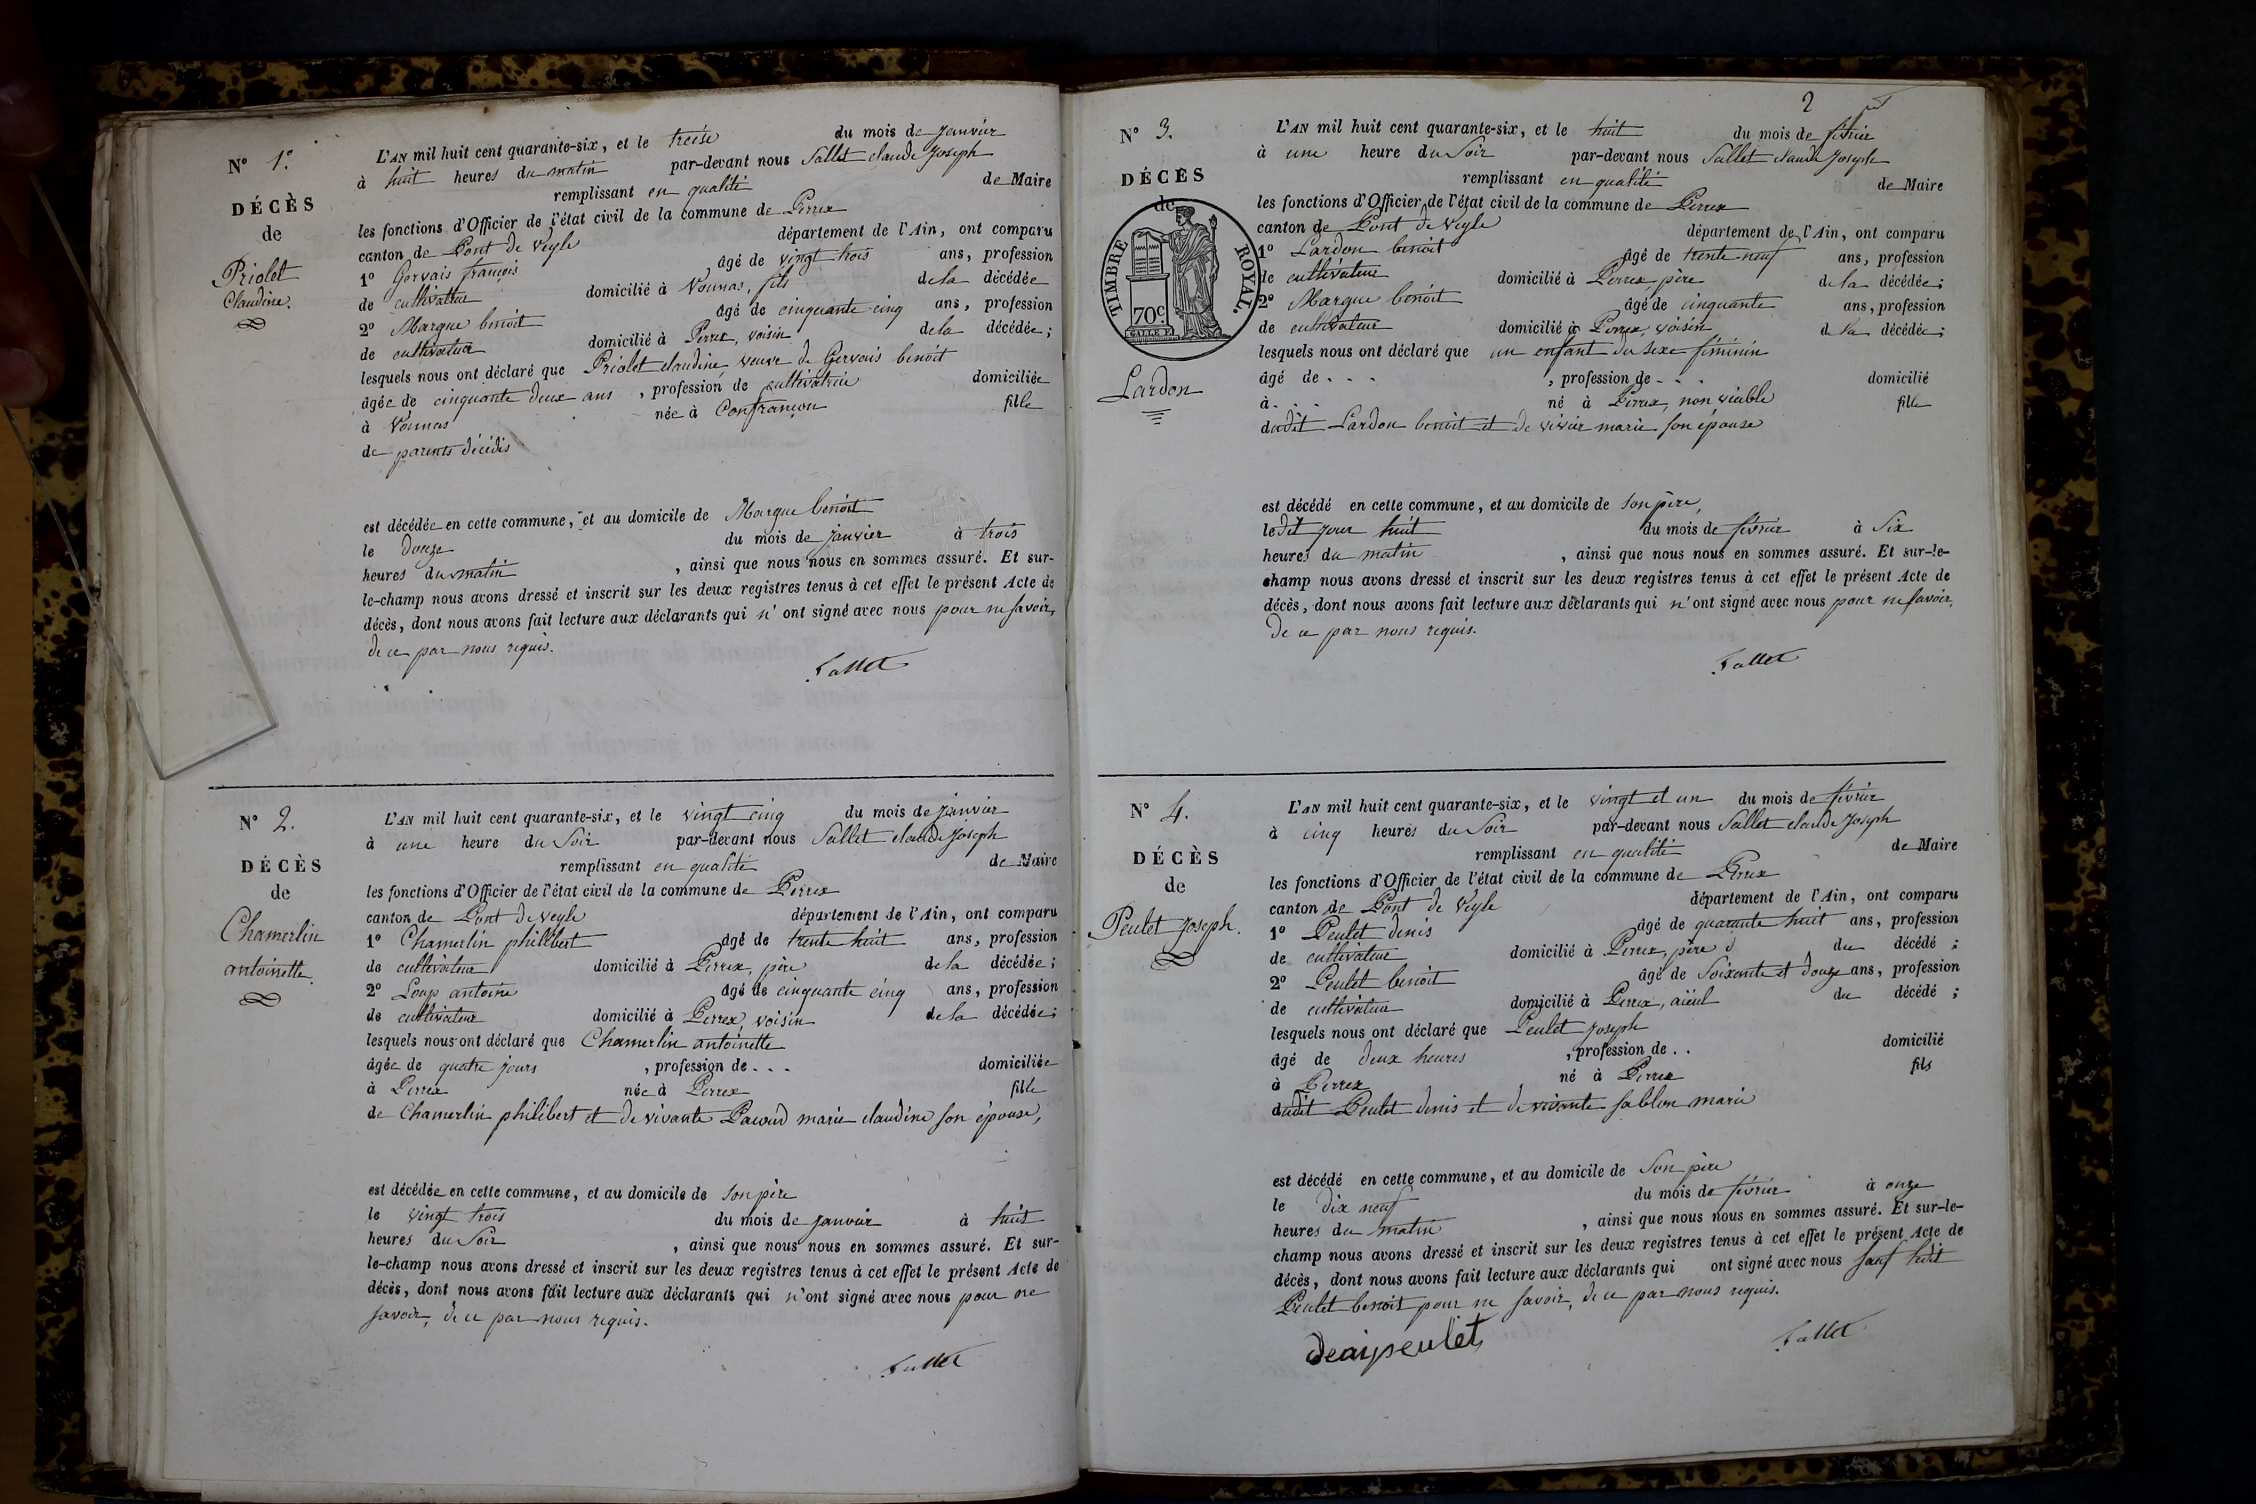 N° 1.°
DÉCÈS
de
Priolet
Claudine.
L'AN mil huit cent quarante-six, et le treise du mois de janvier
à huit heures du matin par-devant nous Sallet claude Joseph
remplissant en qualité de Maire
les fonctions d'Officier de l'état civil de la commune de Perrex
canton de Pont de Veyle département de l'Ain, ont comparu
1° Gervais françois âgé de vingt trois ans, profession
de cultivateur domicilié à Vounas, fils de la décédée
2° Margue benoit âgé de cinquante cinq ans, profession
de cultivateur domicilié à Perrex, voisin de la décédée;
lesquels nous ont déclaré que Priolet claudine veuve de Gervais benoit
âgée de cinquante deux ans, profession de cultivatrice domiciliée
à Vounas née à Confrançon fille
de parents décédés
est décédée en cette commune, et au domicile de Margue benoit
le douze du mois de janvier à trois
heures du matin, ainsi que nous nous en sommes assuré. Et sur-
le-champ nous avons dressé et inscrit sur les deux registres tenus à cet effet le présent Acte de
décès, dont nous avons fait lecture aux déclarants qui n'ont signé avec nous pour ne savoir,
de ce par nous requis.
Sallet
N° 2.
DÉCÈS
de
Chamerlin
antoinette.
L'AN mil huit cent quarante-six, et le vingt cinq du mois de janvier
à une heure du Soir par-devant nous Sallet claude Joseph
remplissant en qualité de Maire
les fonctions d'Officier de l'état civil de la commune de Perrex
canton de Pont de veyle département de l'Ain, ont comparu
1° Chamerlin philibert âgé de trente huit ans, profession
de cultivateur domicilié à Perrex, père de la décédée;
2° Loup antoine âgé de cinquante cinq ans, profession
de cultivateur domicilié à Perrex, voisin de la décédée;
lesquels nous ont déclaré que Chamerlin antoinette
âgée de quatre jours, profession de . . . domiciliée
à Perrex née à Perrex fille
de Chamerlin philibert et de vivante Pacoud marie claudine son épouse,
est décédée en cette commune, et au domicile de son père
le vingt trois du mois de janvier à huit
heures du Soir, ainsi que nous nous en sommes assuré. Et sur-
le-champ nous avons dressé et inscrit sur les deux registres tenus à cet effet le présent Acte de
décès, dont nous avons fait lecture aux déclarants qui n'ont signé avec nous pour ne
savoir, de ce par nous requis.
Sallet
2
N° 3.
DÉCÈS
de
TIMBRE ROYAL.
70c
Lardon
L'AN mil huit cent quarante-six, et le huit du mois de février
à une heure du Soir par-devant nous Sallet claude Joseph
remplissant en qualité de Maire
les fonctions d'Officier de l'état civil de la commune de Perrex
canton de Pont de Veyle département de l'Ain, ont comparu
1° Lardon benoit âgé de trente neuf ans, profession
de cultivateur domicilié à Perrex, père de la décédée;
2° Margue benoit âgé de cinquante ans, profession
de cultivateur domicilié à Perrex, voisin de la décédée;
lesquels nous ont déclaré que un enfant du sexe féminin
âgé de . . . , profession de . . . domicilié
à . . . né à Perrex, non viable fille
dudit Lardon benoit et de vivier marie son épouse
est décédé en cette commune, et au domicile de son père,
ledit jour huit du mois de février à Six
heures du matin, ainsi que nous nous en sommes assuré. Et sur-le-
champ nous avons dressé et inscrit sur les deux registres tenus à cet effet le présent Acte de
décès, dont nous avons fait lecture aux déclarants qui n'ont signé avec nous pour ne savoir,
de ce par nous requis.
Sallet
N° 4.
DÉCÈS
de
Peulet Joseph.
L'AN mil huit cent quarante-six, et le vingt et un du mois de février
à cinq heures du Soir par-devant nous Sallet claude Joseph
remplissant en qualité de Maire
les fonctions d'Officier de l'état civil de la commune de Perrex
canton de Pont de Veyle département de l'Ain, ont comparu
1° Peulet denis âgé de quarante huit ans, profession
de cultivateur domicilié à Perrex, père du décédé ;
2° Peulet benoit âgé de Soixante et douze ans, profession
de cultivateur domicilié à Perrex, aïeul du décédé ;
lesquels nous ont déclaré que Peulet joseph
âgé de deux heures, profession de . . domicilié
à Perrex né à Perrex fils
dudit Peulet denis et de vivante sablon marie
est décédé en cette commune, et au domicile de Son père
le dix neuf du mois de février à onze
heures du matin, ainsi que nous nous en sommes assuré. Et sur-le-
champ nous avons dressé et inscrit sur les deux registres tenus à cet effet le présent Acte de
décès, dont nous avons fait lecture aux déclarants qui ont signé avec nous sauf ledit
Peulet benoit pour ne savoir, de ce par nous requis.
Sallet